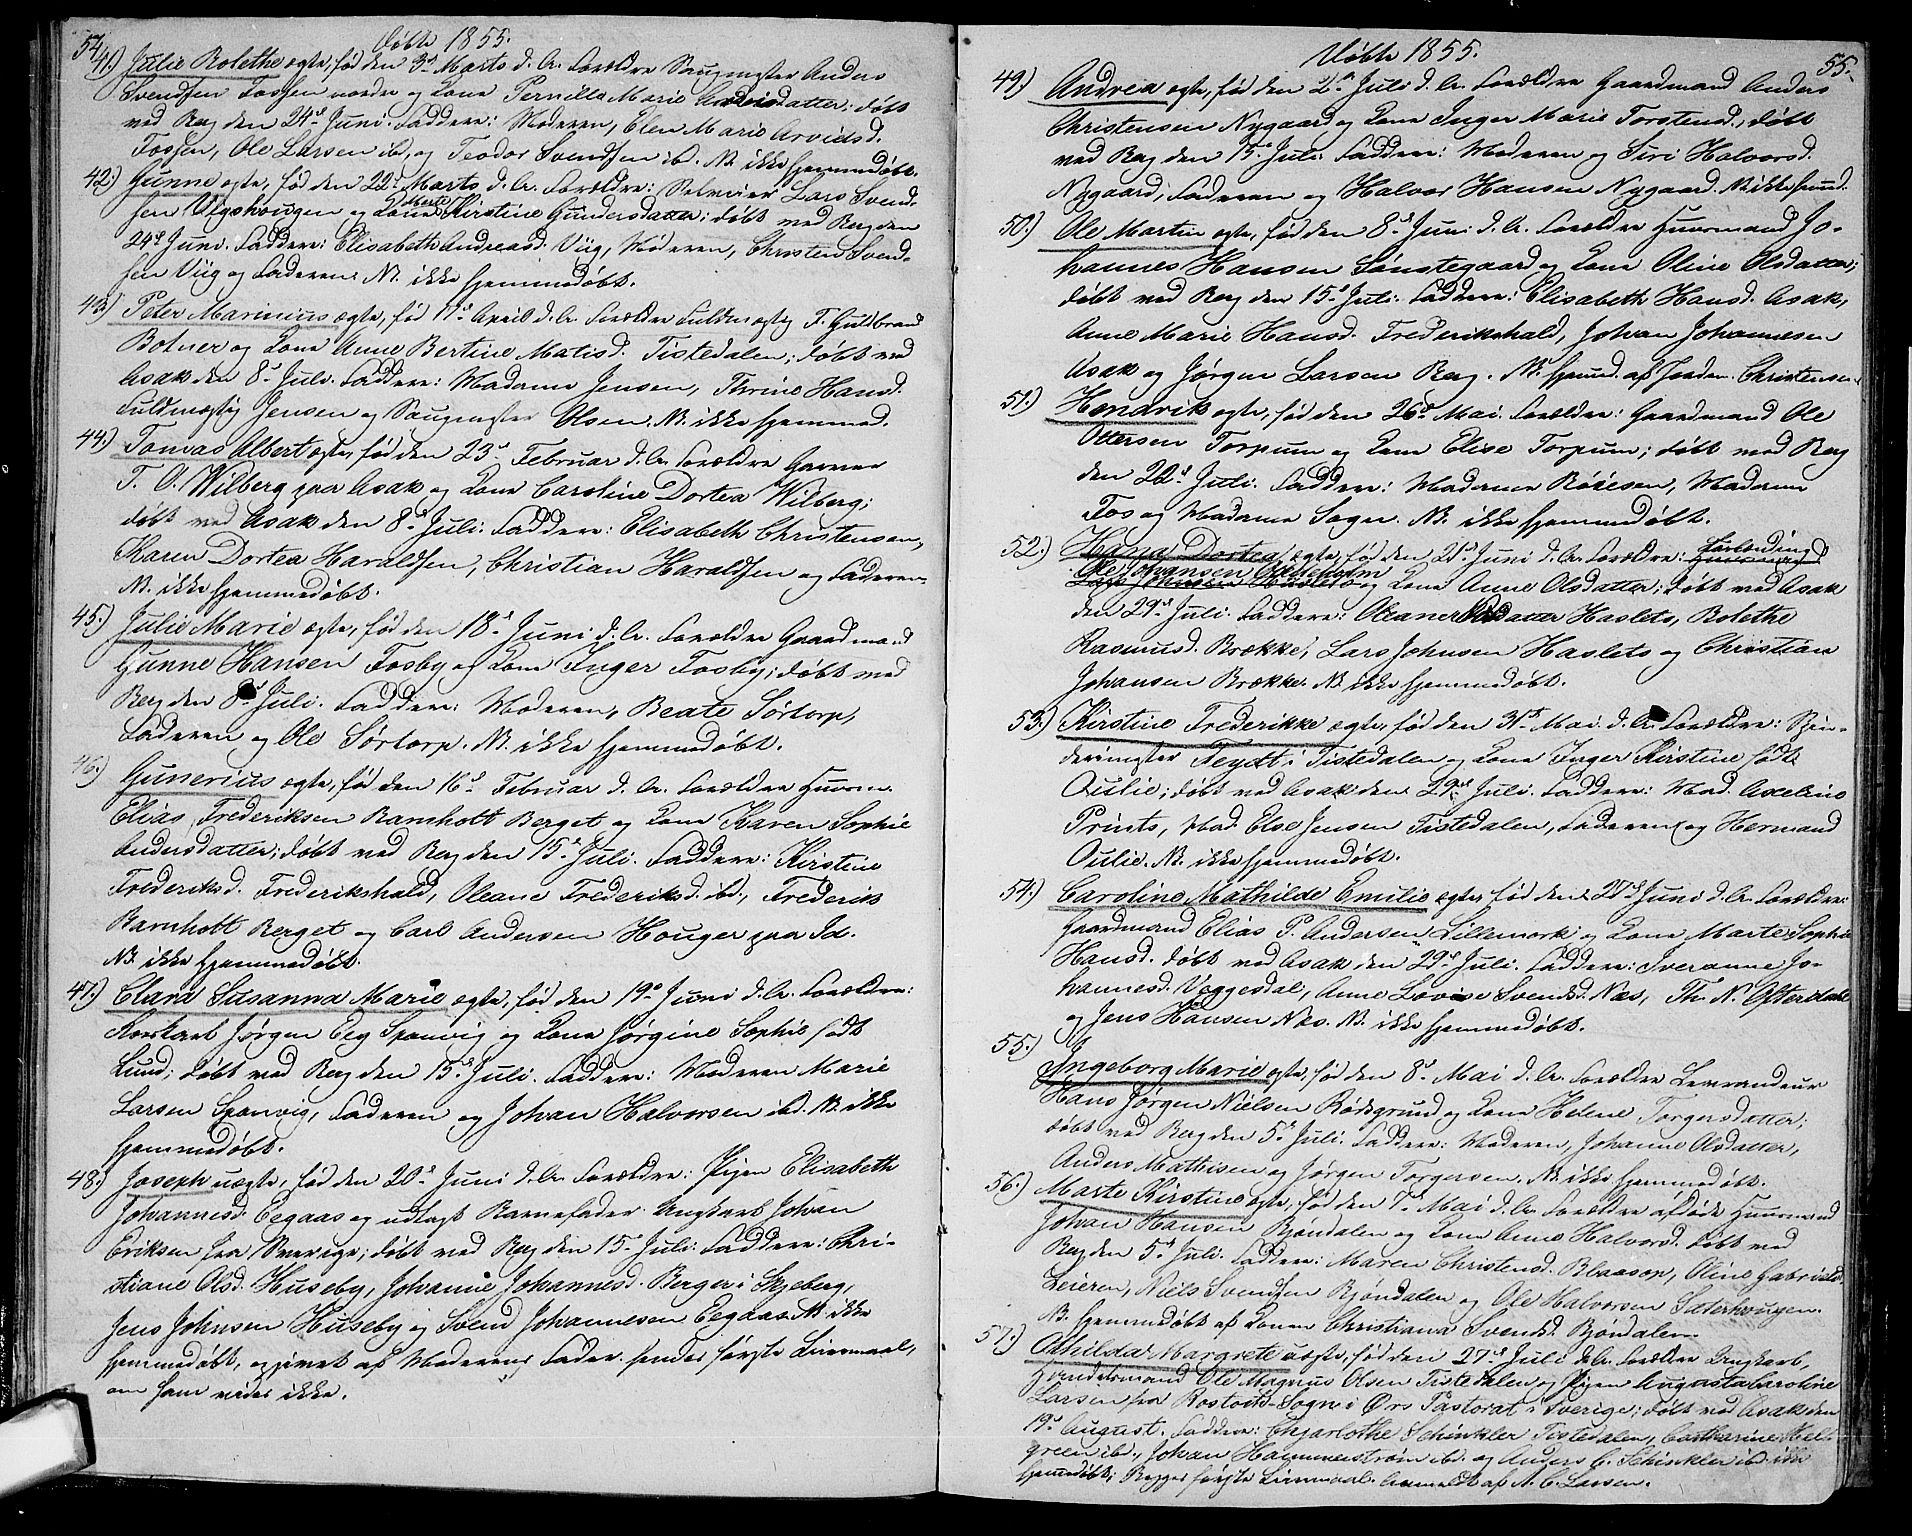 54.
Døbte 1855.
41.) Julie Bolethe ægte, fød den 3d Marts d. A. Forældre Saugmester Anders
Svendsen Fossen nordre og Kone Pernille Marie Arvidsdatter; døbt
ved Berg den 24d Juni. Faddere: Moderen, Elen Marie Arvidsd.
Fossen, Ole Larsen ibd, og Teodor Svendsen ibd. NB. ikke hjemmedøbt.
42.) Gunne ægte, fød den 22d Marts d. A. Forældre: Selveier Lars Svend-
sen Vigshougen og Kone Marte Kirstine Gundersdatter; døbt ved Berg den
24d Juni. Faddere: Elisabeth Andreasd. Viig, Moderen, Christen Svend-
sen Viig og Faderen. NB. ikke hjemmedøbt.
43.) Peter Marinius ægte, fød 17d April d. A. Forældre Fuldmægtig T. Guldbrand
Botner og Kone Anne Bertine Matisd. Tistedalen; døbt ved
Asak den 8d Juli. Faddere: Madame Jensen, Thrine Hansd.
Fuldmægtig Jensen og Saugmester Olsen. NB. ikke hjemmed.
44.) Tomas Albert ægte, fød den 23d Februar d. A. Forældre Garver
T. O. Wilberg paa Asak og Kone Caroline Dortea Wilberg;
døbt ved Asak den 8d Juli. Faddere: Elisabeth Christensen,
Karen Dortea Haraldsen, Christian Haraldsen og Faderen.
NB. ikke hjemmedøbt.
45.) Julie Marie ægte, fød den 18d Juni d. A. Forældre Gaardmand
Gunne Hansen Fosby og Kone Inger Fosby; døbt ved
Berg den 8d Juli. Faddere: Moderen, Beate Sørtorp,
Faderen og Ole Sørtorp. NB. ikke hjemmedøbt.
46.) Gunerius ægte, fød den 16d Februar d. A. Forældre Huusm.
Elias Frederiksen Ramholt Berget og Kone Karen Sophie
Andersdatter; døbt ved Berg den 15d Juli. Faddere: Kirstine
Frederiksd. Frederikshald, Oleane Frederiksd. ibd, Frederik
Ramholt Berget og Carl Andersen Houger paa Id.
NB. ikke hjemmedøbt.
47.) Clara Susanna Marie ægte, fød den 19d Juni d. A. Forældre:
Jørgen Eeg Sponvig og Kone Jørgine Sophie født
Lund; døbt ved Berg den 15d Juli. Faddere: Moderen Marie
Larsen Sponvig, Faderen og Johan Halvorsen ibd. NB. ikke
hjemmedøbt.
48.) Joseph uægte, fød den 20d Juni d. A. Forældre: Pigen Elisabeth
Johannesd. Eegaas og udlagt Barnefader Ungkarl Johan
Eriksen fra Sverige; døbt ved Berg den 15d Juli. Faddere: Chri-
stiane Olsd. Huseby, Johanne Johannesd. Berger i Skjeberg,
Jens Johnsen Huseby og Svend Johannesen Eegaas. NB. ikke
hjemmedøbt, opgivet af Moderens Fader. hendes første Leiermaal,
om hans vides ikke.
Døbte 1855.
55.
49.) Andrea ægte, fød den 2d Juli d. A. Forældre Gaardmand Anders
Christensen Nygaard og Kone Inger Marie Torstensd., døbt
ved Berg den 15d Juli. Faddere: Moderen og Siri Halvorsd.
Nygaard, Faderen og Halvor Hansen Nygaard. NB. ikke hjemd.
50.) Ole Martin ægte, fød den 8d Juni d. A. Forældre Huusmand Jo-
hannes Hansen Sønstegaard og Kone Oline Olsdatter;
døbt ved Berg den 15d Juli. Faddere: Elisabeth Hansd. Asak,
Anne Marie Hansd. Frederikshald, Johan Johannesen
Asak og Jørgen Larsen Berg. NB. hjemd. af Jordm. Christensen.
51.) Hendrik ægte, fød den 26d Mai. Forældre: Gaardmand Ole
Ottersen Torpum og Kone Elise Torpum; døbt ved Berg
den 22d Juli. Faddere: Madame Madame
Fos og Madame Sager. NB. ikke hjemmedøbt.
52.) Hana Dortea ægte, fød den 21d Juni d. A. Forældre: Huusmand
Ole Johansen og Kone Anne Olsdatter; døbt ved Asak
den 29d Juli. Faddere: Oleane Olsdatter Haslets, Bolethe
Rasmusd. Brække, Lars Johnsen Haslets og Christian
Johansen Brække. NB. ikke hjemmedøbt.
53.) Kirstine Frederikke ægte, fød den 31d Mai d. A. Forældre: Spin-
derimester Feydt i Tistedalen og Kone Inger Kirstine født
Oulie; døbt ved Asak den 29d Juli. Faddere: Mad. Axeline
Prints, Mad. Else Jensen Tistedalen, Faderen og Hermand
Oulie. NB. ikke hjemmedøbt.
54.) Caroline Mathilde Emilie ægte, fød den 27d Juni d. A. Forældre:
Gaardmand Elias P. Andersen Lillemork og Kone Marte Sophie
Hansd. døbt ved Asak den 29d Juli. Faddere: Iveranne Jo-
hannesd. Veggesdal, Anne Lovise Svendsd. Næs, Th. N. Østerdahl
og Jens Hansen Næs. NB. ikke hjemmedøbt.
55.) Ingeborg Marie ægte, fød den 8d Mai d. A. Forældre Leverandeur
Hans Jørgen Nielsen Rødsgrund og Kone Helene Torgersdatter;
døbt ved Berg den 5d Juli. Faddere: Moderen, Johanne Olsdatter,
Anders Mathisen og Jørgen Torgersen. NB. ikke hjemmedøbt.
56.) Marte Kirstine ægte, fød den 7d Mai d. A. Forældre afdøde Huusmand
Johan Hansen Bjøndalen og Kone Anne Halvorsd. døbt ved
Berg den 5d Juli. Faddere: Maren Christensd. Blaasop, Oline Gabrielsd.
Leieren, Niels Svendsen Bjøndalen og Ole Halvorsen Sæterhougen.
NB. hjemmedøbt af Konen Christiana Svendsd. Bjøndalen.
57.) Othilda Margrete uægte, fød den 27d Juli d. A. Forældre Ungkarl,
Handelsmand Ole Magnus Olsen Tistedalen og Pigen Augusta Caroline
Larsen fra Rostoids-Sogn i Ørs Pastorat i Sverige; døbt ved Asak den
19d August. Faddere: Chjarlothe Schinkler Tistedalen, Catharine
green ibd., Johan Hammerstrøm ibd. og Anders C. Schinkler ibd. ikke
hjemmedøbt; Begges første Leiermaal. Anmeldt af A. C. Larsen.